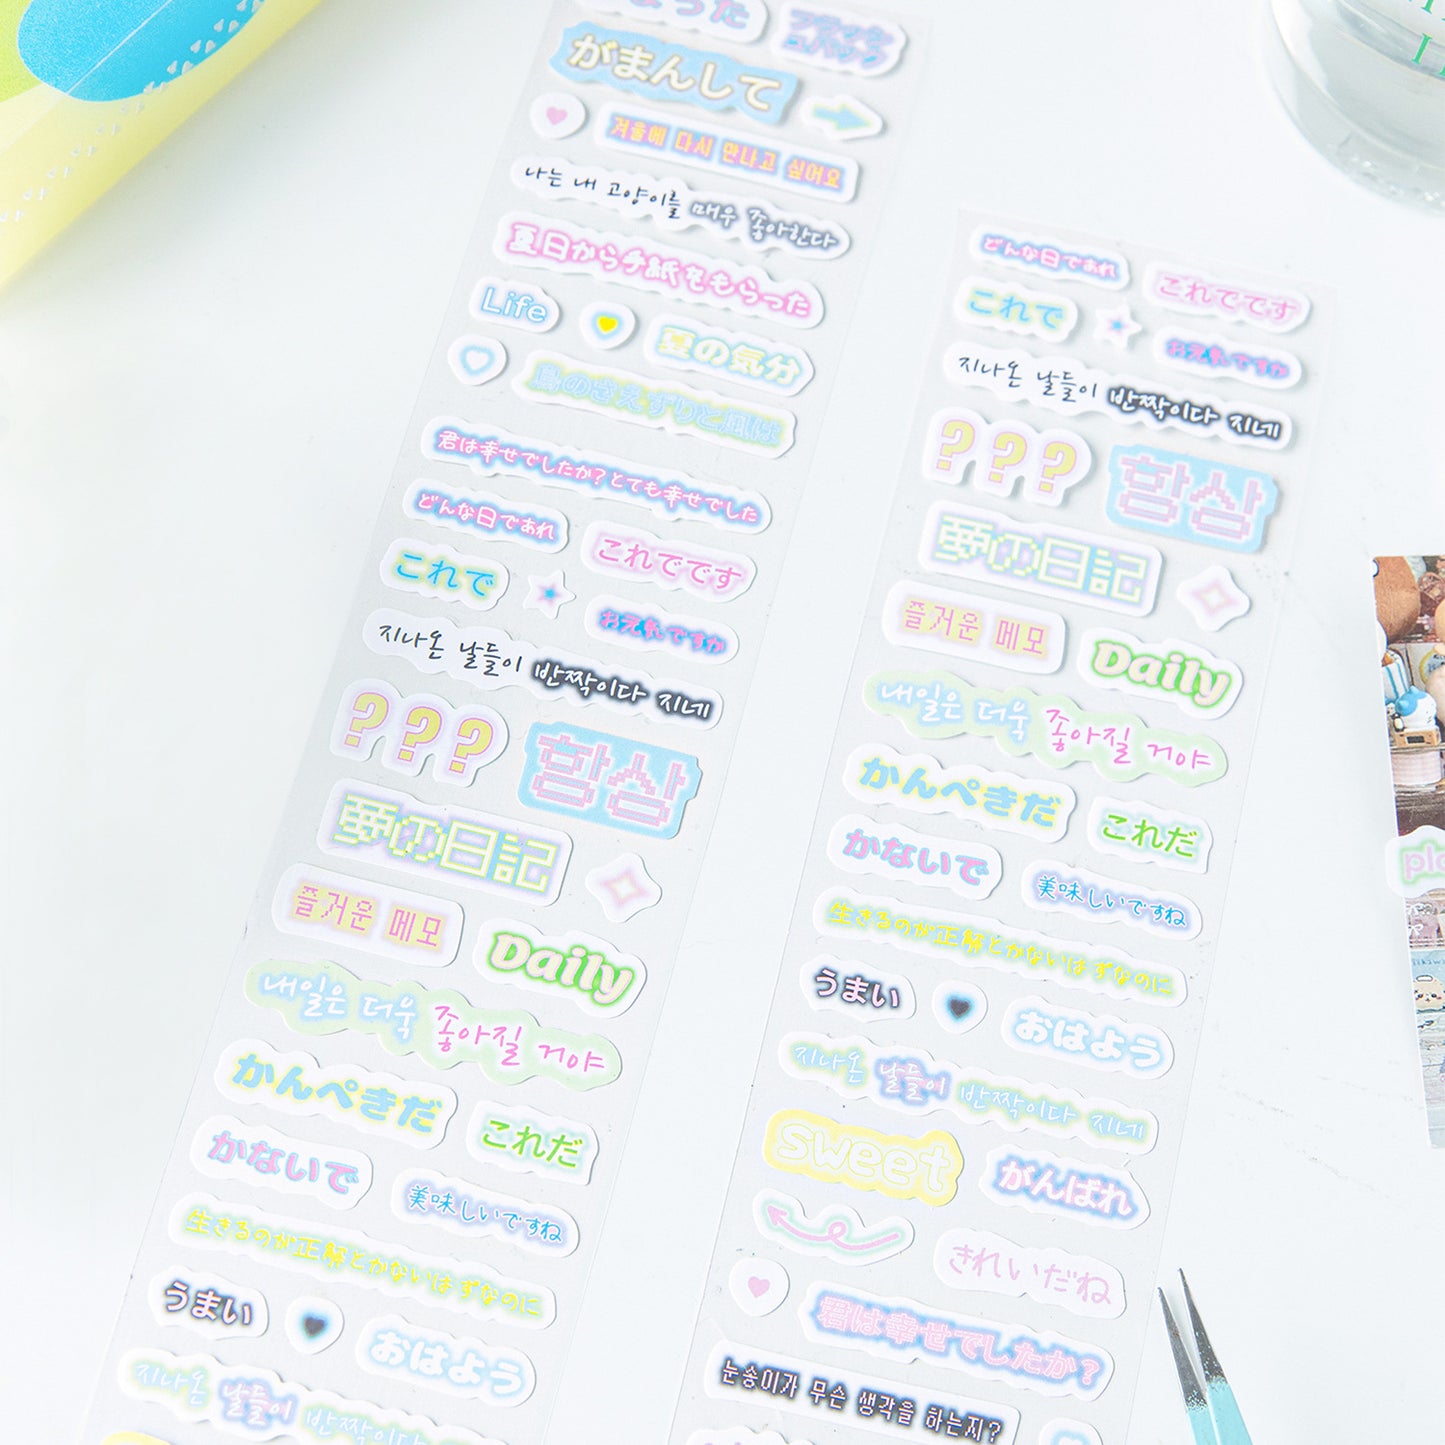 った
がまんして
겨울에 다시 만나고 싶어요
나는 내 고양이를 매우 좋아한다
夏日から手紙をもらった
Life
夏の気分
鳥のさえずりと風は
君は幸せでしたか？とても幸せでした
どんな日であれ
これでです
これで
お元気ですか
지나온 날들이 반짝이다 지네
???
항상
夏の日記
즐거운 메모
Daily
내일은 더욱 좋아질 거야
かんぺきだ
これだ
かないで
美味しいですね
生きるのが正解とかないはずなのに
うまい
おはよう
지나온 날들이 반짝이다
どんな日であれ
これでです
これで
お元気ですか
지나온 날들이 반짝이다 지네
???
항상
夏の日記
즐거운 메모
Daily
내일은 더욱 좋아질 거야
かんぺきだ
これだ
かないで
美味しいですね
生きるのが正解とかないはずなのに
うまい
おはよう
지나온 날들이 반짝이다 지네
sweet
がんばれ
きれいだね
君は幸せでしたか？
눈송이가 무슨 생각을 하는지?